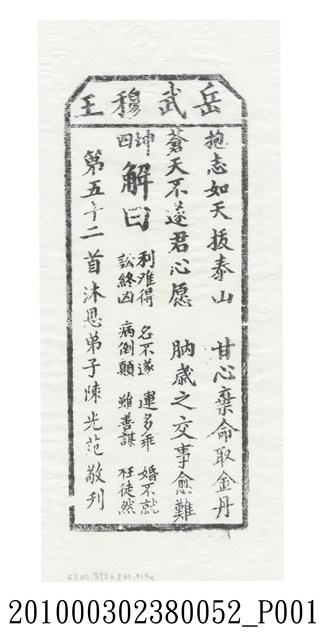 岳武穆王
抱志如天拔泰山　甘心棄命取金丹
蒼天不遂君心愿　肭歲之交事愈難
坤四　解曰　利难得　名不遂　運多乖　婚不就
訟終凶　病倒顛　雖善謀　枉徒然
第五十二首沐恩弟子陳光范敬刊
201000302380052_P001